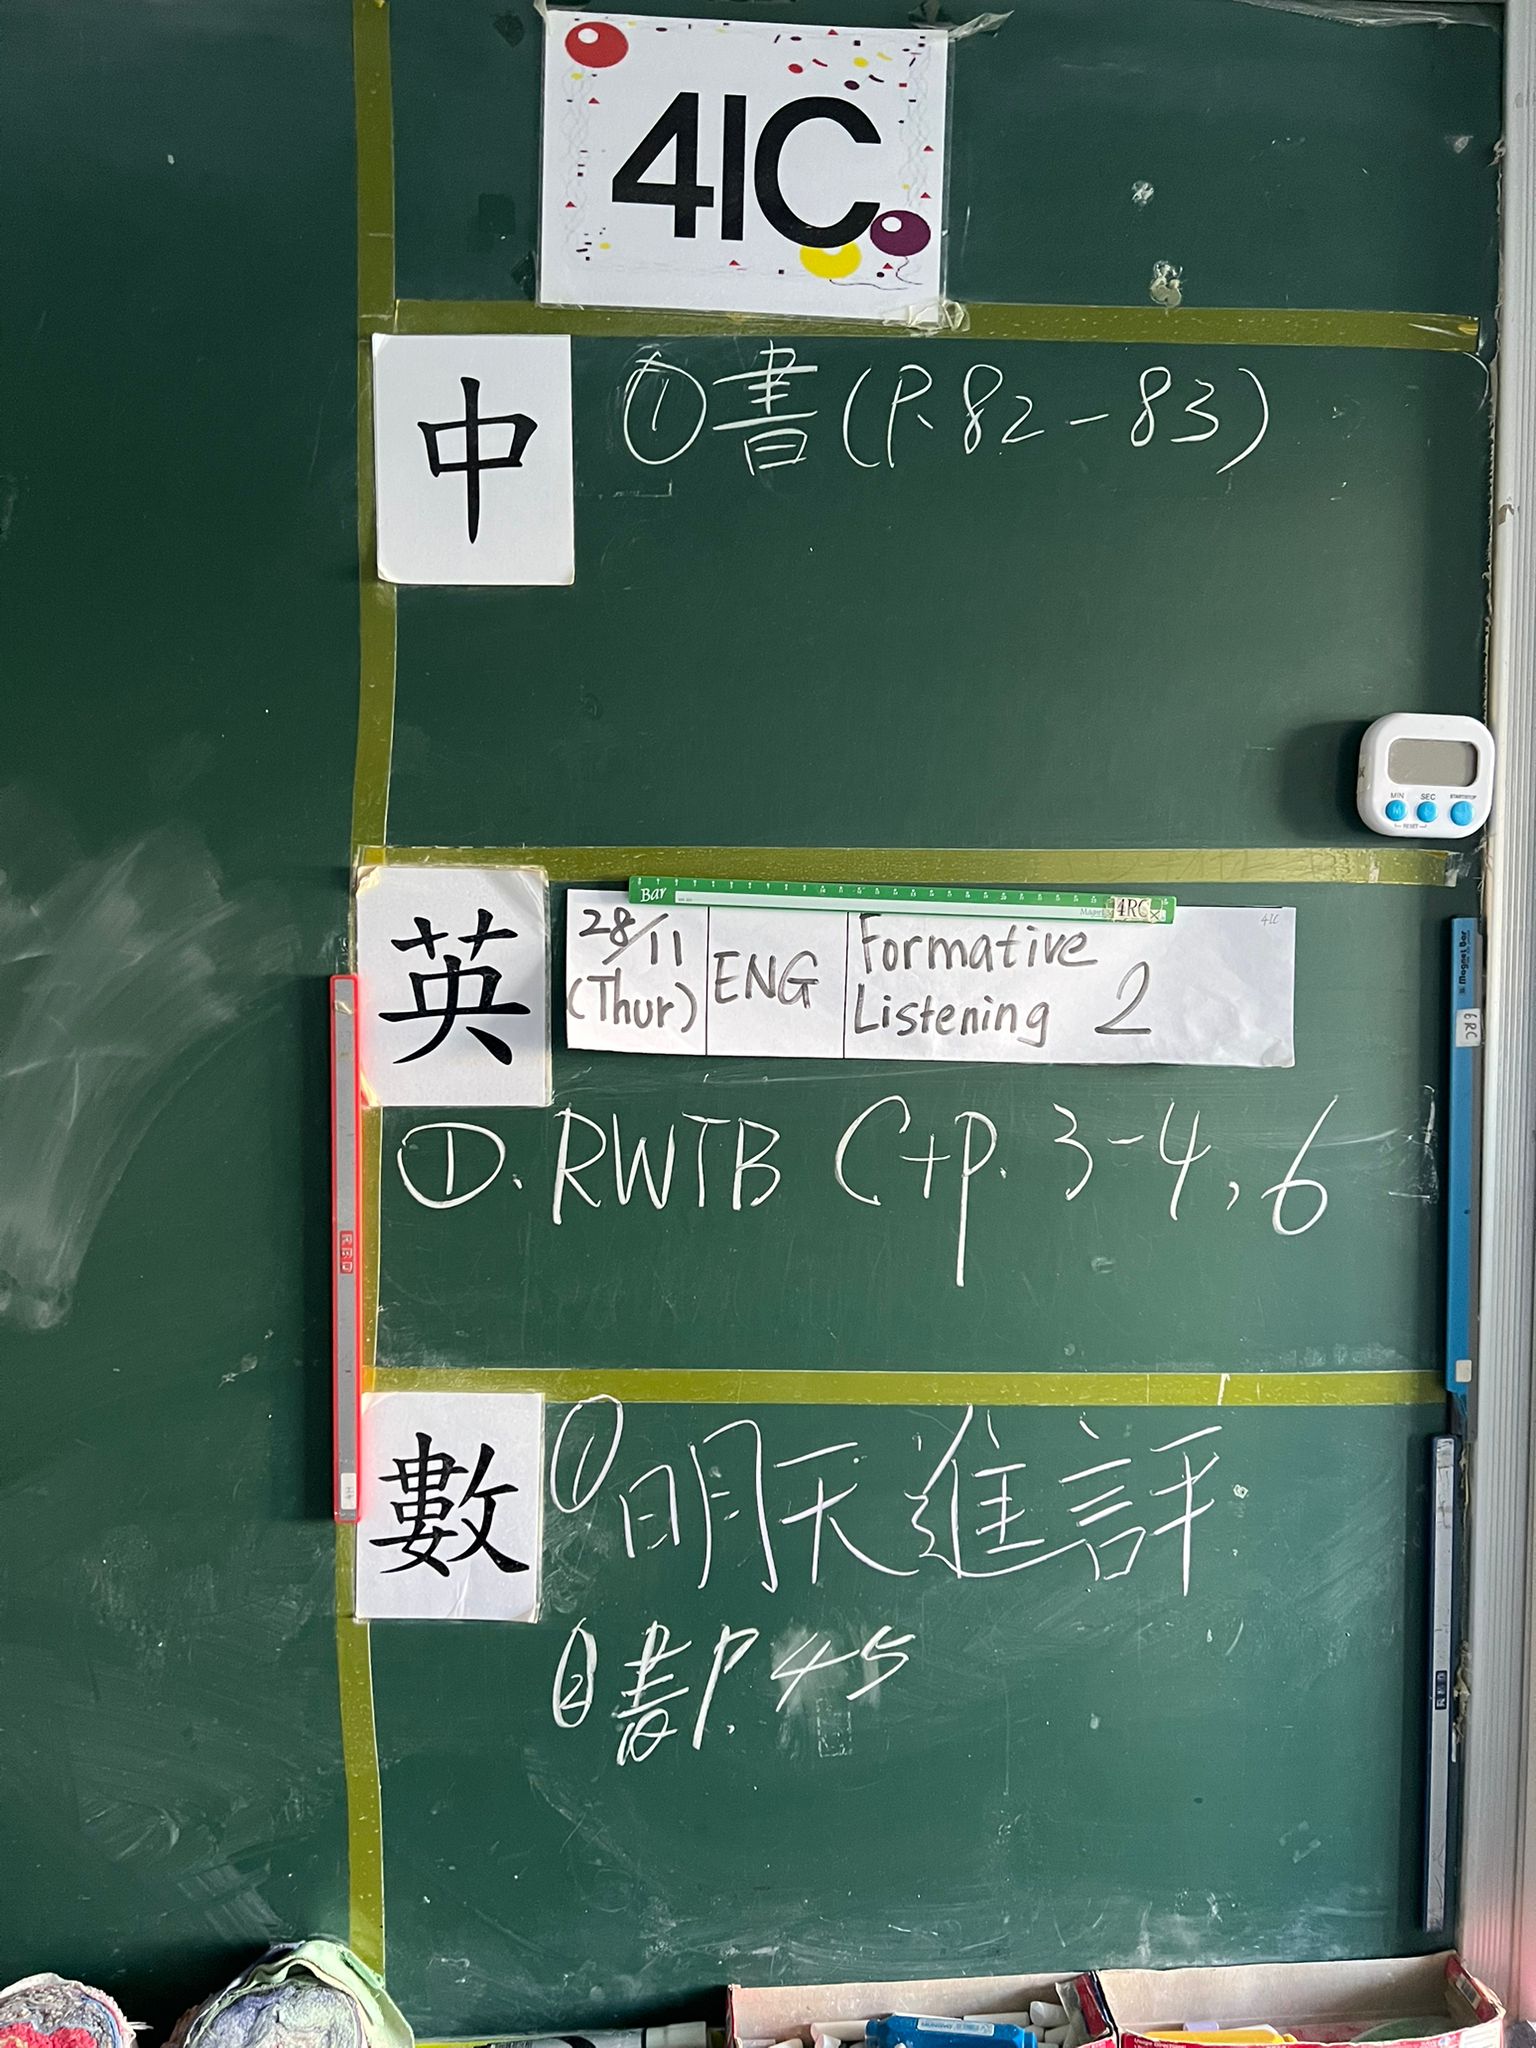 4IC
中
①書(P.82-83)
英
Bar
4RC
28/11
(Thur)
ENG
Formative
Listening 2
4IC
①. RWTB C+p. 3-4, 6
數
①明天進評
②書P.45
MIN SEC START/STOP
RESET
Magnet Bar
6RC